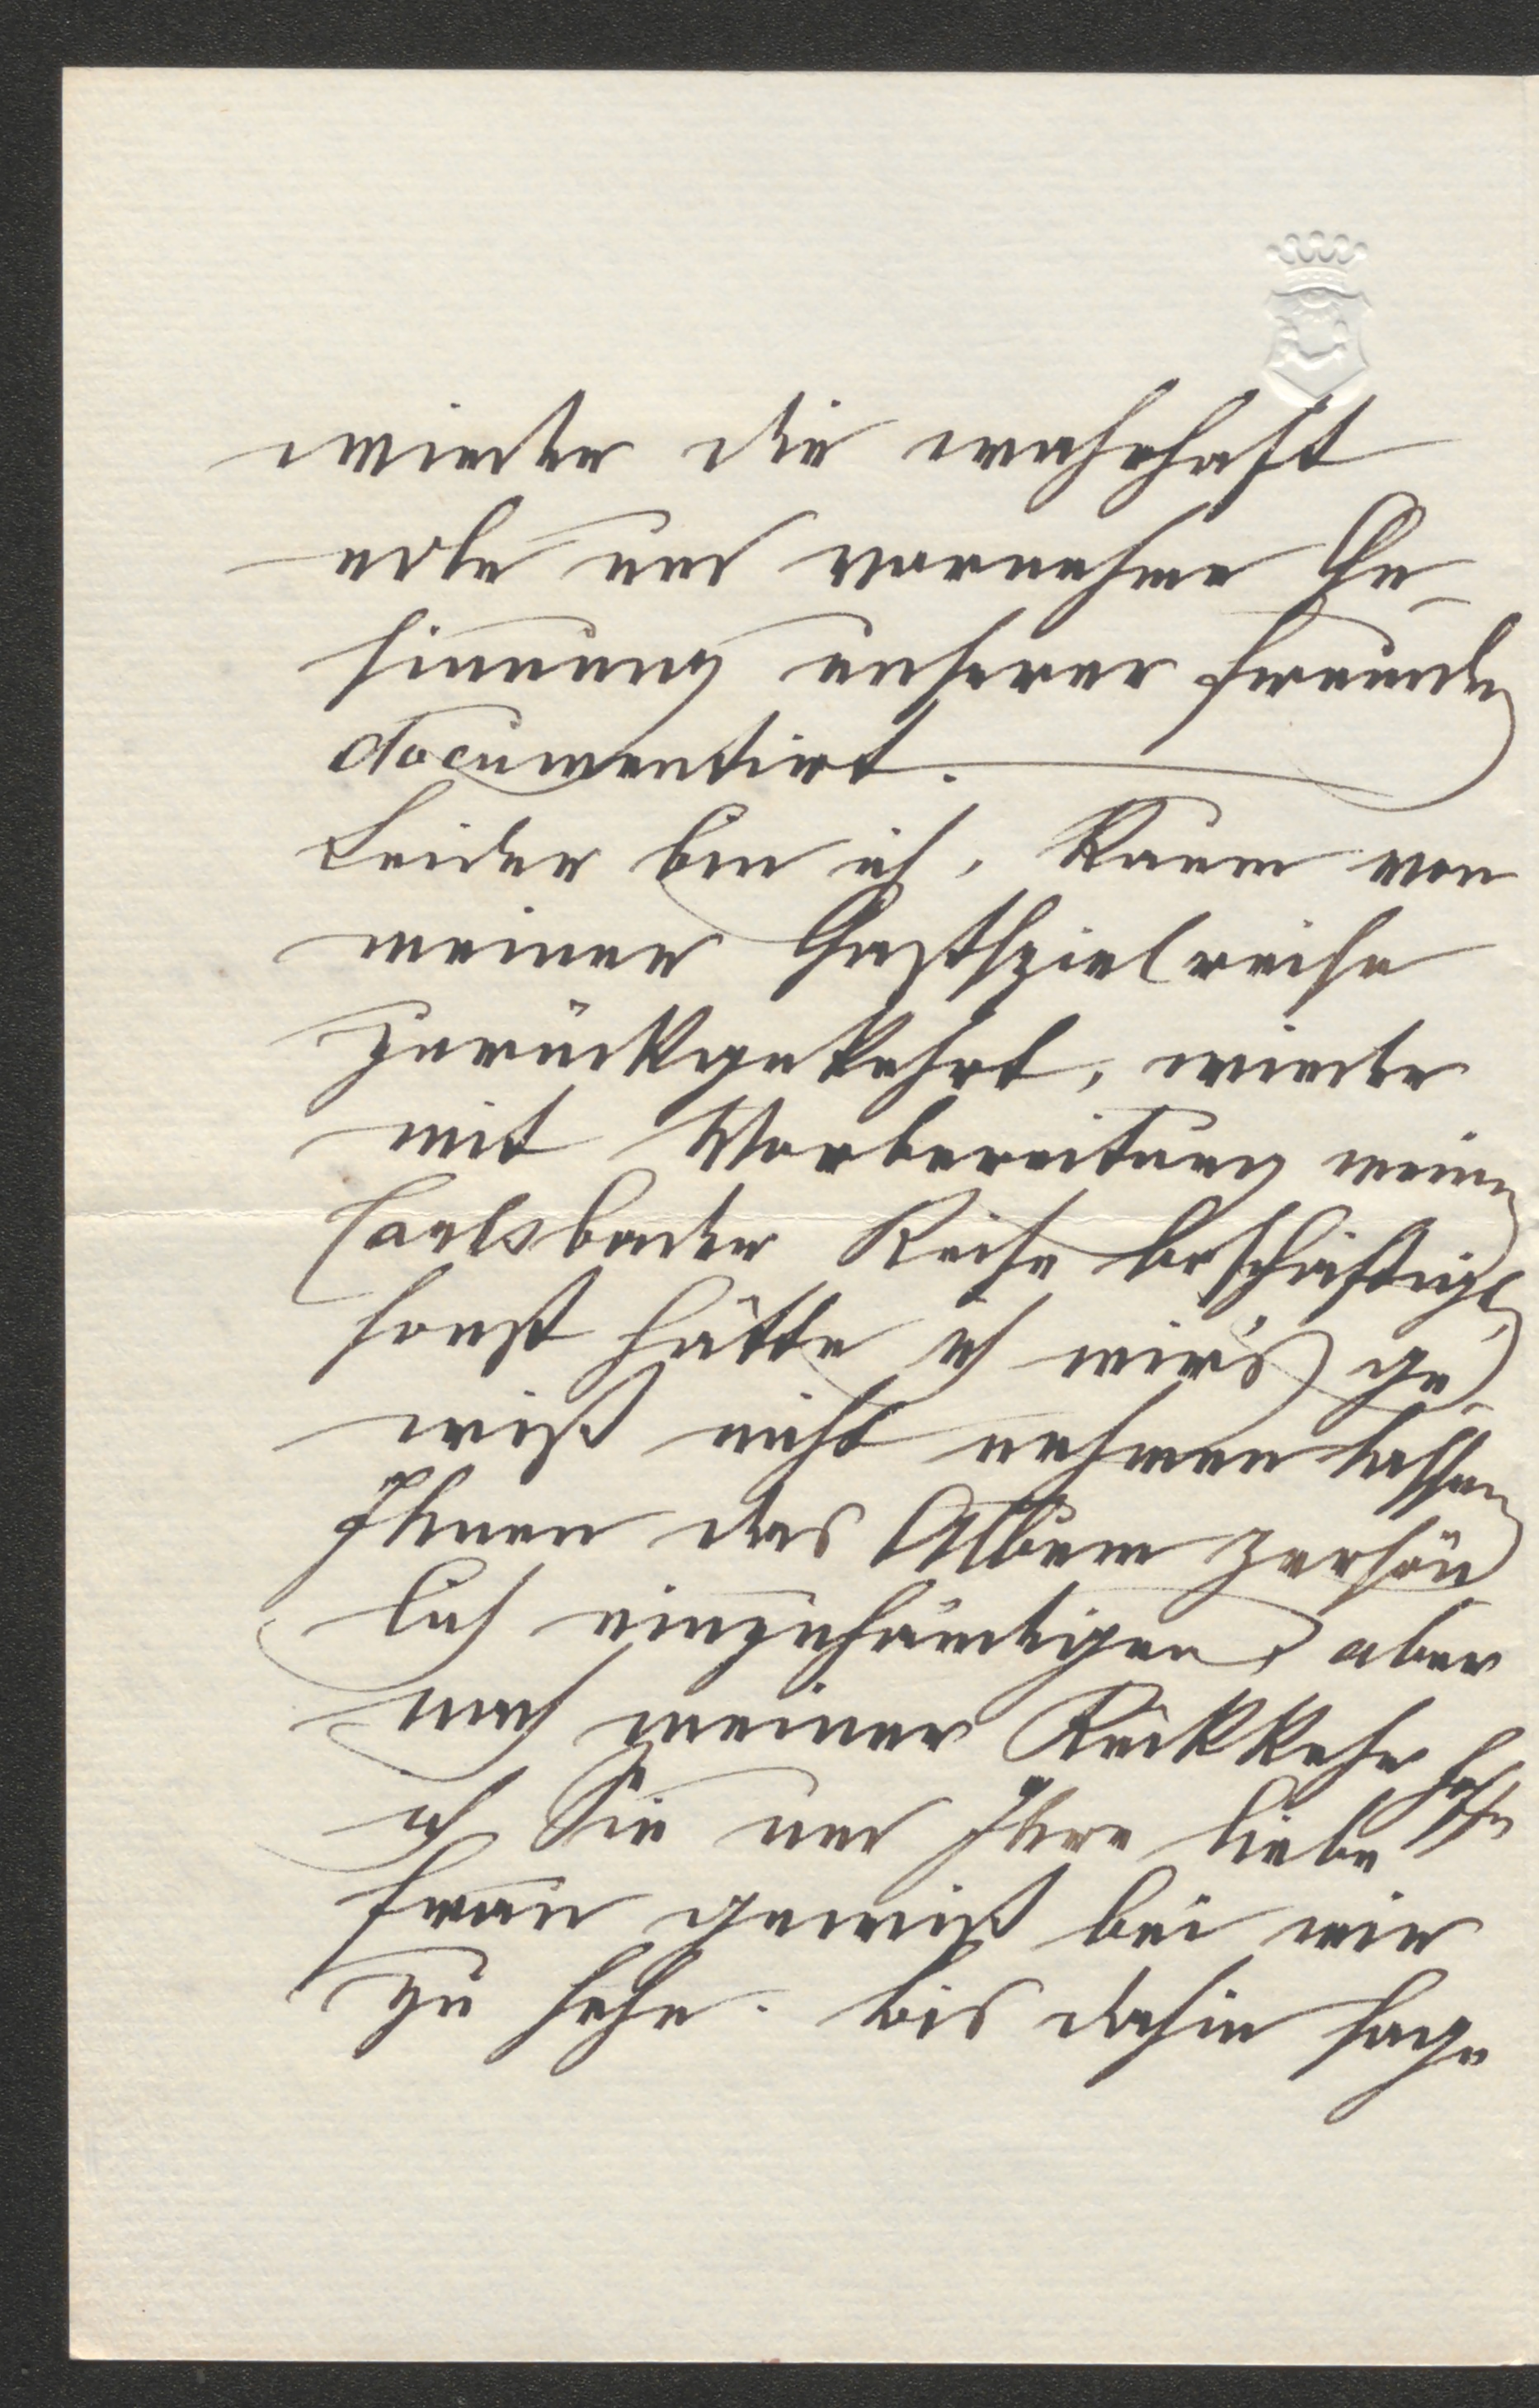 wieder die wahrhaft
edle und vornehme Ge-
sinnung unserer Freunde
documentirt.
Leider bin ich, kaum von
meiner Gastspielreise
zurückgekehrt, wieder
mit Vorbereitung meiner
Carlsbader Reise beschäftigt,
sonst hätte ich mir's ge-
wiß nicht nehmen lassen
Ihnen das Album persön
lich einzuhändigen, aber
nach meiner Rückkehr hoffe
ich Sie und Ihre liebe
Frau gewiß bei mir
zu sehen. bis dahin sage